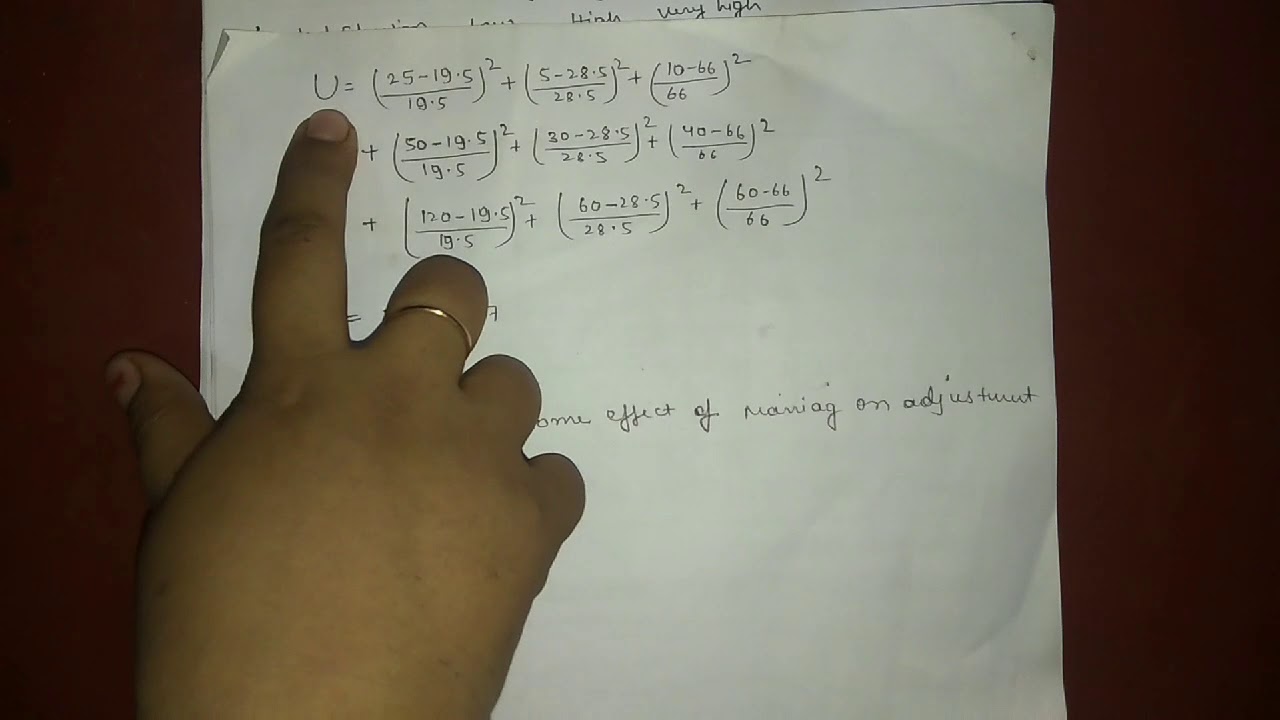 High very high
U = (25-19.5/19.5)² + (5-28.5/28.5)² + (10-66/66)²
+ (50-19.5/19.5)² + (30-28.5/28.5)² + (40-66/66)²
+ (120-19.5/19.5)² + (60-28.5/28.5)² + (60-66/66)²
= 7
ome effect of on adjustment